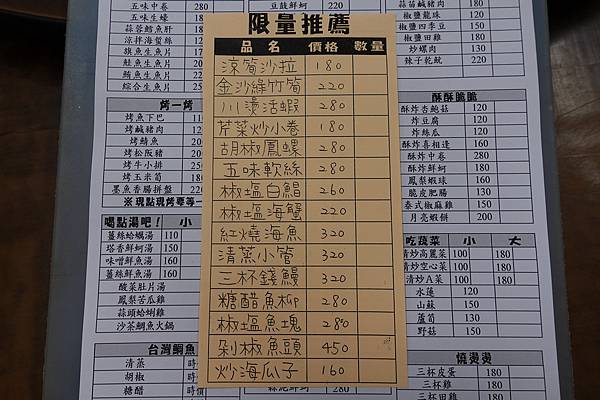 五味中卷 280
五味生蠔
蒜蓉鱈魚肝
涼拌海蜇絲
旗魚生魚片
鮭魚生魚片
鮪魚生魚片
綜合生魚片
烤一烤
烤魚下巴
烤鹹豬肉
烤鯖魚
烤松阪豬
烤牛小排
烤玉米筍
墨魚香腸拼盤 220
※現點現烤要等一
喝點湯吧! 小
薑絲蛤蠣湯 110
塔香鮮蚵湯 150
味噌鮮魚湯 160
薑絲鮮魚湯 160
酸菜肚片湯
鳳梨苦瓜雞
蒜頭蛤蜊雞
沙茶鯛魚火鍋
台灣鯛魚
清蒸
胡椒
糖醋
豆鼓鮮蚵 180
限量推薦
品名 價格 數量
涼筍沙拉 180
金沙綠竹筍 220
川燙活蝦 280
芹菜炒小卷 180
胡椒鳳螺 280
五味軟絲 280
椒塩白鯧 260
椒塩海蟹 220
紅燒海魚 320
清蒸小管 320
三杯錢鰻 320
糖醋魚柳 280
椒塩魚塊 280
剁椒魚頭 450
炒海瓜子 160
220
蒜苗鹹豬肉 180
椒鹽龍珠 120
椒鹽四季豆 150
椒鹽田雞 180
炒螺肉 130
辣子乾魷 220
酥酥脆脆
酥炸杏鮑菇 120
炸豆腐 120
炸絲瓜 120
酥炸喜相逢 160
酥炸中卷 280
酥炸鮮蚵 180
鳳梨蝦球 160
脆皮肥腸 130
泰式椒麻雞 150
月亮蝦餅 200
吃蔬菜 小 大
清炒高麗菜 100 180
清炒空心菜 100 180
清炒A菜 100 180
水蓮 120
山蘇 150
蘆筍 130
野菇 150
燒燙燙
三杯皮蛋 180
三杯雞 180
三杯田雞 180